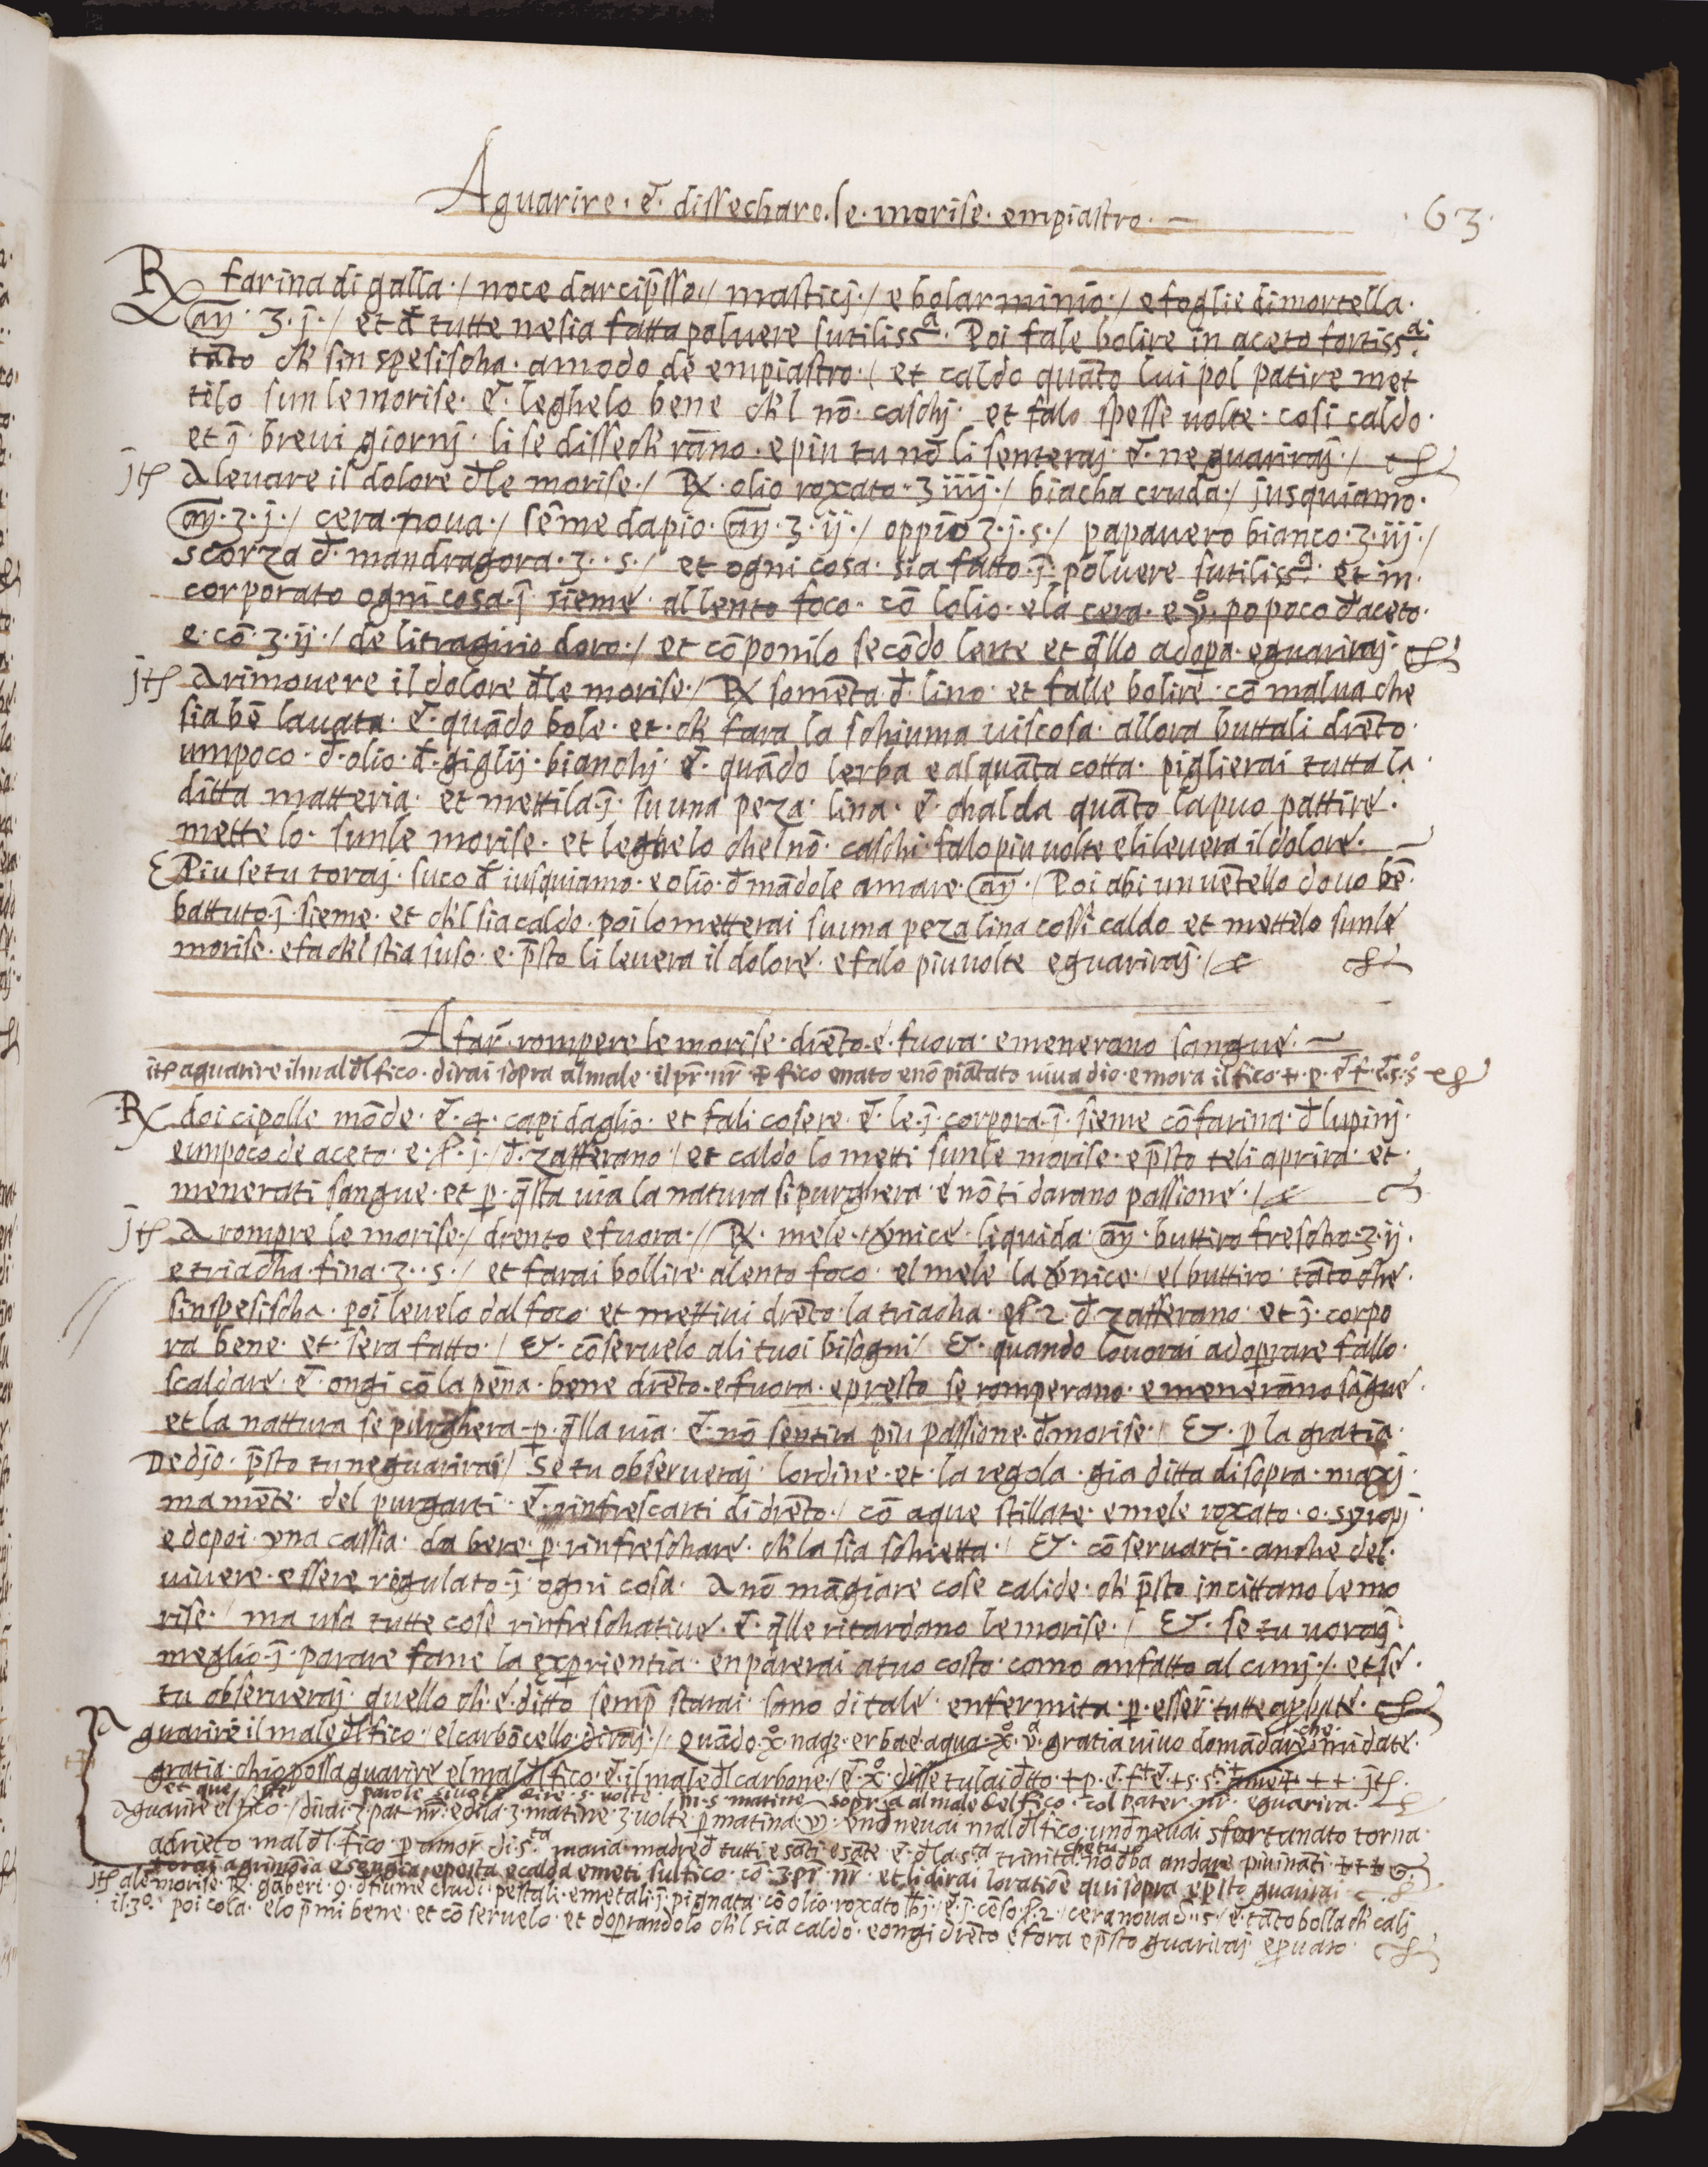 Aguarire · et · dissechare · le · morise · empiastro ·
· 63 ·
Rx farina di galla · / noce darcip̄sso · / masticj · / e bolarminio · / e foglie di mortella ·
añ · ʒ · j · / et đ tutte nesia fatta polvere sutilissᵃ · Poi fale bolire in aceto fortissᵃ ·
tāto ch' sinspesischa · amodo de empiastro · / et caldo quāto lui pol patire met
telo sun le morise · et · leghelo bene ch'l nō · caschj · et falo spesse uolte · cosi caldo ·
et j̄ · brevi giornj · li se dissech'rāno · e piu tu nō li senteraj · et · ne guariraj · /
jtē A levare il dolore đle morise · / Rx · olio roxato · ʒ iiij · / biacha cruda · / jusquiamo ·
añ · ʒ · j · / cera nova · / sēme dapio · añ · ʒ · ij · / oppio ʒ · j · s · / papavero bianco · ʒ · iij · /
scorza đ · mandragora · ʒ · · s · / et ogni cosa · sia fatto · j̄ · polvere sutilissᵃ · et in ·
corporato ogni cosa · j̄ · sieme · al lento foco · cō lolio · e la cera · e vº · po poco đ aceto ·
e · cō · ʒ · ij · / de litragirio doro · / et cōponilo secōdo larte et q̄llo adopa · e guariraj ·
jtē A rimovere il dolore đle morise · / Rx somēta · đ · lino · et falle bolire · cō malva che
sia bē lavata · et · quādo bole · et · ch' fara la schiuma viscosa · allora buttali drēto ·
umpoco · đ · olio · đ · giglij · bianchj · et · quādo lerba e alquāta cotta · piglierai tutta la ·
ditta matteria · et mettila · j̄ · su una peza · lina · et · chalda quāto la puo pattire ·
mette lo · sunle morise · et leghelo chel nō · caschi · falo piu uolte e li levera il dolore ·
E Piu se tu toraj · suco đ iusquiamo · e olio · đ mādole amare · añ · / Poi abi un uētello dovo bē ·
battuto · j̄ · sieme · et ch'l sia caldo · poi lo metterai su una peza lina cossi caldo et mettelo sunle
morise · e fa ch'l stia suso · e · p̄sto li levera il dolore · e falo piu uolte e guariraj · /
A far̄ · rompere le morise · drēto · e · fuora · e menerano sangue ·
itē aguarire il mal đl fico · dirai sopra al male · il pr̄ · nr̄ · ✝ fico e nato e nō piātato viva dio · e mora il fico · ✝ · p · et · f · et · s · sº
Rx doi cipolle mōde · et · 4 · capi daglio · et fali cosere · et · le · j̄ · corpora · j̄ · sieme cō farina · đ lupinj ·
e umpoco de aceto · e · · j · / đ · zafferano / et caldo lo metti sunle morise · e p̄sto te li aprira · et ·
menerati sangue · et p · q̄sta via la natura si purghera · e nō ti darano passione · /
jtē A rompre le morise · / drento e fuora · // Rx · mele · liquida · añ · buttiro frescho · ʒ · ij ·
e triacha fina · ʒ · · s · / et farai bollire · a lento foco · el mele la / el buttiro · tāto che ·
sinspesischa · poi levelo dal foco · et mettivi drēto · la triacha · · 2 · đ zafferano · et j̄ · corpo
ra bene · et sera fatto · / Et · cōservelo ali tuoi bisogni / Et · quando lo vorai adoprare fallo ·
scaldare · et · ongi cō la pēna · bene drēto · e fuora · e presto se romperano · e menerāno sāgue ·
et la nattura se purghera p · q̄lla via · et · nō sentira piu passione · đ morise · / Et · p la gratia ·
De djo · p̄sto tu ne guarirai / Se tu observeraj · lordine · et · la regola · gia ditta di sopra · maxj ·
mamēte · del purgarti · et · rinfrescarti di drēto · / cō aque stillate · e mele roxato · o · syropj ·
e dopoi · vna cassia · da bere · p · rinfreschare · ch' la sia schietta · / Et · cō servarti · anche del ·
vivere · essere regulato · j̄ · ogni cosa · A nō māgiare cose calide · ch' p̄sto incittano le mo
rise · / ma usa tutte cose rinfreschative · et · q̄lle ritardano le morise · / Et · se tu voraj ·
meglio · j̄ · parare fane la exprientia · enparerai a tuo costo · como anfatto alcunj · / · et se ·
tu observeraj · quello ch' · e · ditto semp̄ starai · sano di tale · enfermita · p · esser̄ · tutte
A guarire il male đl fico · / el carbōcello · diraj · / · quādo · xº · naq̄ · erba e aqua · xº · vº · gratia vivo domādar che mi date ·
gratia · chio possa guarire el mal đl fico · et · il male đl carbone · / et · xº · disse tu lai đtto · ✝ p · et · f ✝ et · ✝ s · sti ✝ ame ✝ ✝ ✝ · jtē ·
et que parole · s · volte · m · s · matine sopra al male del fico · col pater · nr̄ · e guarira ·
A guarire el fico / dirai · 3 · pat · nr̄ · e đila · 3 · matine · 3 · volte · p matina · v · vnđ nevai mal đl fico · unđ nevai sfortunato torna ·
adrieto · mal đl · fico · p amor · di · sᵗᵃ maria · madre đ tutti e sāti e sāte · et · đ la sᵗᵃ trinita · che tu nō đba andare piu ināti · ✝ ✝ ✝
toraj agrimōia e sengia · e pesta e calda e meti sul fico · cō · 3 pr̄ · nr̄ · et li dirai loratiōe qui sopra e p̄sto guarirai
jtē ale morise · Rx · gāberi · 9 · đ fiume crudi · pestali · e metali · j̄ · pignata · cō olio · roxato · j · / et · j · cēso · 2 · / cera nova · s · / et · tāto bolla ch' calj
il · 3º · poi cola · e lo p̄mi bene · et cō servelo · et doprandolo ch'l sia caldo · e ongi drēto e fora e p̄sto guariraj e pvato ·